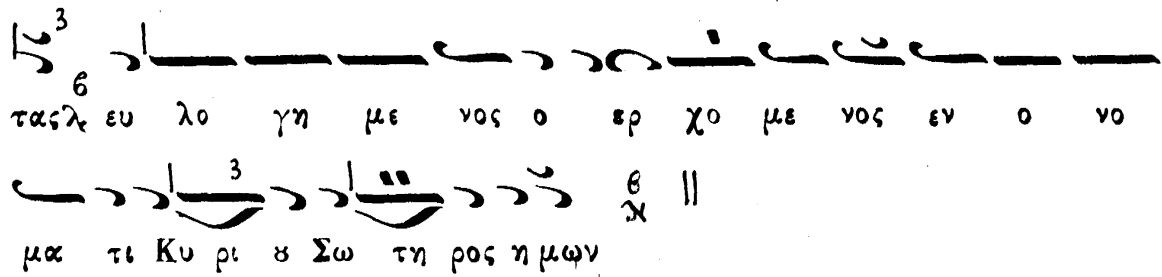 τας ευ λο γη με νος ο ερ χο με νος εν ο νο
μα τι Κυ ρι ȣ Σω τη ρος η μων